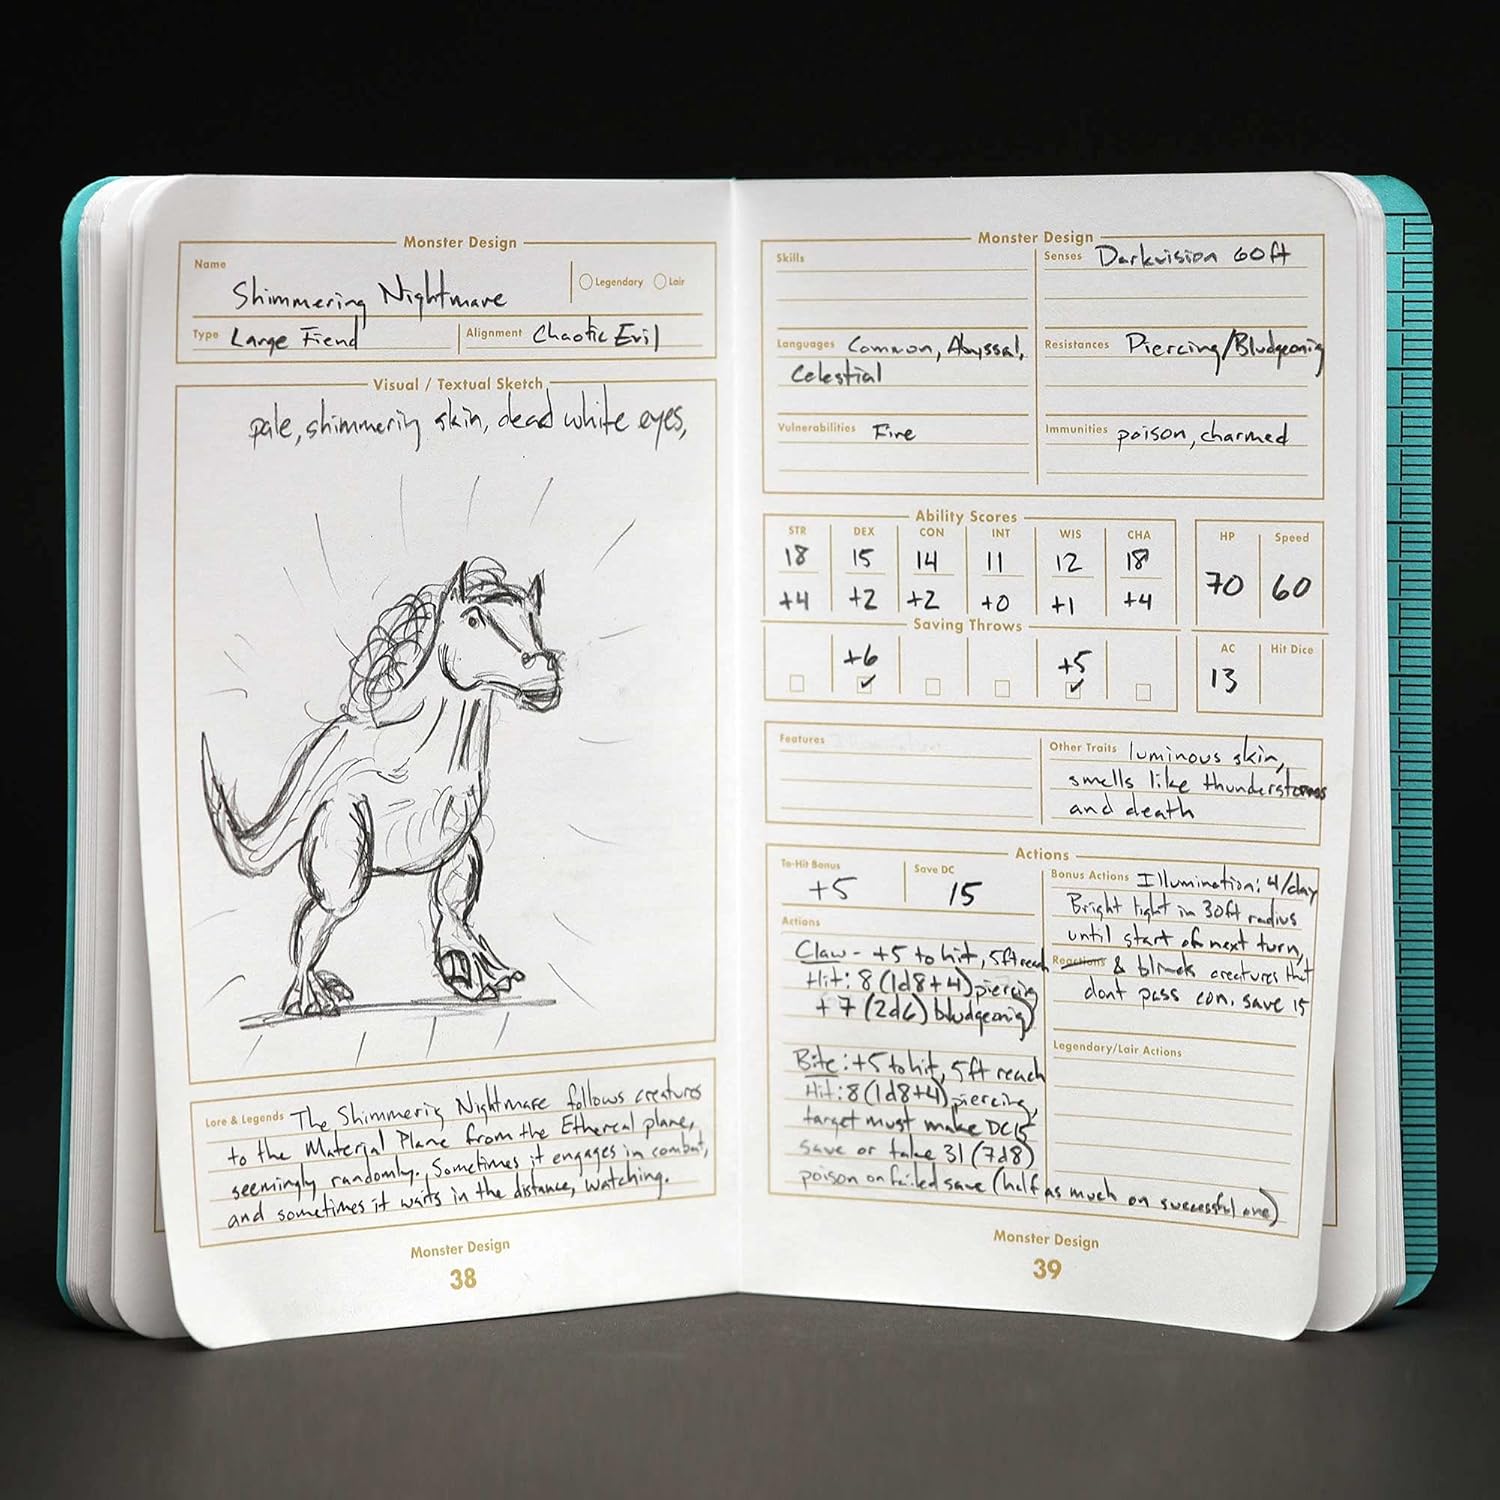 Monster Design
Name
Shimmering Nightmare
Legendary Lair
Type Large Fiend Alignment Chaotic Evil
Visual / Textual Sketch
pale, shimmerin skin, dead white eyes,
Lore & Legends The Shimmerig Nightmare follows creatures
to the Material Plane from the Ethereal plane,
seemingly randomly. Sometimes it engages in combat,
and sometimes it waits in the distance, watching.
Monster Design
38
Monster Design
Skills
Senses Darkvision 60ft
Languages Common, Abyssal,
Celestial
Resistances Piercing/Bludgeonig
Vulnerabilities Fire
Immunities poison, charmed
Ability Scores
STR DEX CON INT WIS CHA
18 15 14 11 12 18
+4 +2 +2 +0 +1 +4
HP Speed
70 60
Saving Throws
+6 +5
AC Hit Dice
13
Features
Other Traits luminous skin,
smells like thunderstorms
and death
Actions
To-Hit Bonus
+5
Save DC
15
Actions
Claw - +5 to hit, 5ft reach
Hit: 8 (1d8+4) piercing
+ 7 (2d6) bludgeonig)
Bite: +5 to hit, 5ft reach
Hit: 8 (1d8+4) piercing,
target must make DC15
save or take 31 (7d8)
poison on failed save (half as much on successful one)
Bonus Actions Illumination: 4/day
Bright light in 30ft radius
until start of next turn,
Reactions & blinds creatures that
dont pass con. save 15
Legendary/Lair Actions
Monster Design
39